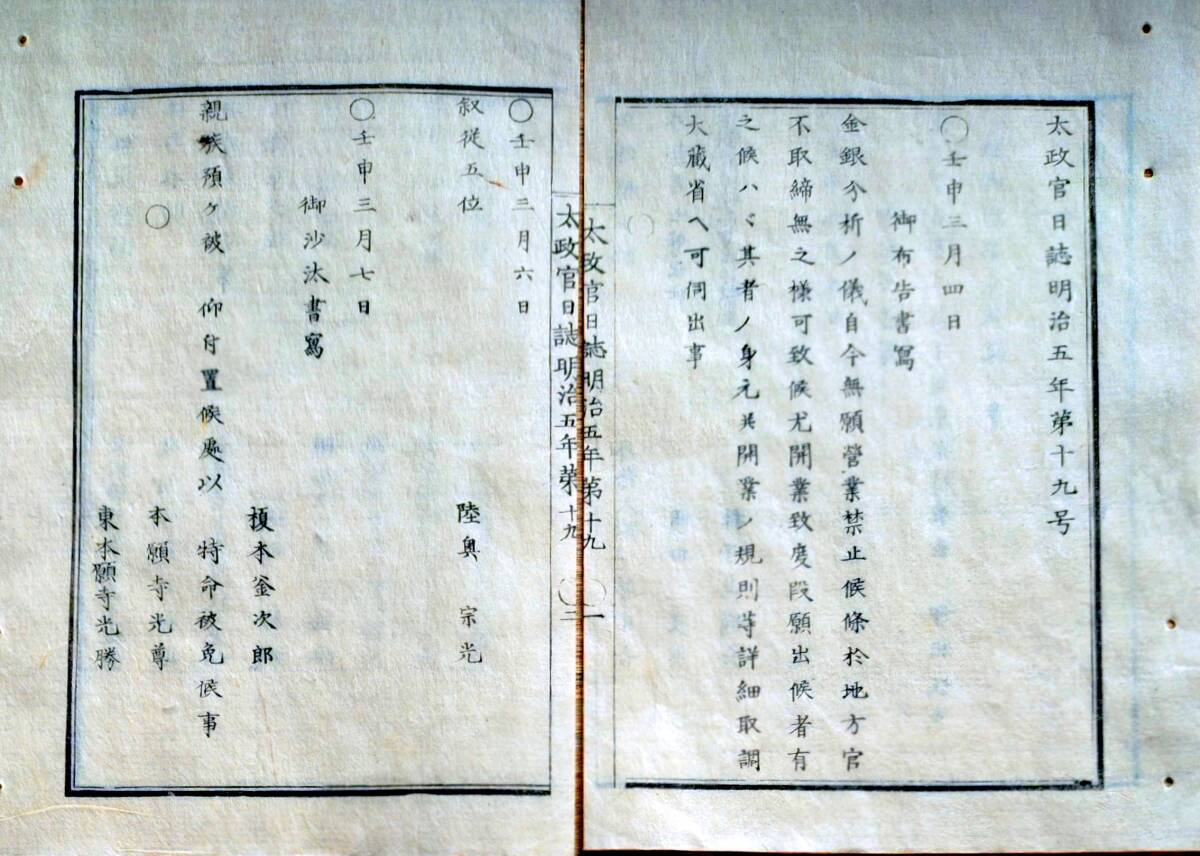 太政官日誌明治五年第十九号
〇壬申三月四日
御布告書寫
金銀分析ノ儀自今無願營業禁止候條於地方官
不取締無之様可致候尤開業致度段願出候者有
之候ハヾ其者ノ身元并開業ノ規則等詳細取調
大藏省ヘ可伺出事
太政官日誌明治五年第十九 〇一
太政官日誌明治五年第十九 〇二
〇壬申三月六日
叙從五位
陸奥 宗光
〇壬申三月七日
御沙汰書寫
榎本釜次郎
親族預ケ被 仰付置候處以 特命被免候事
〇
本願寺光尊
東本願寺光勝